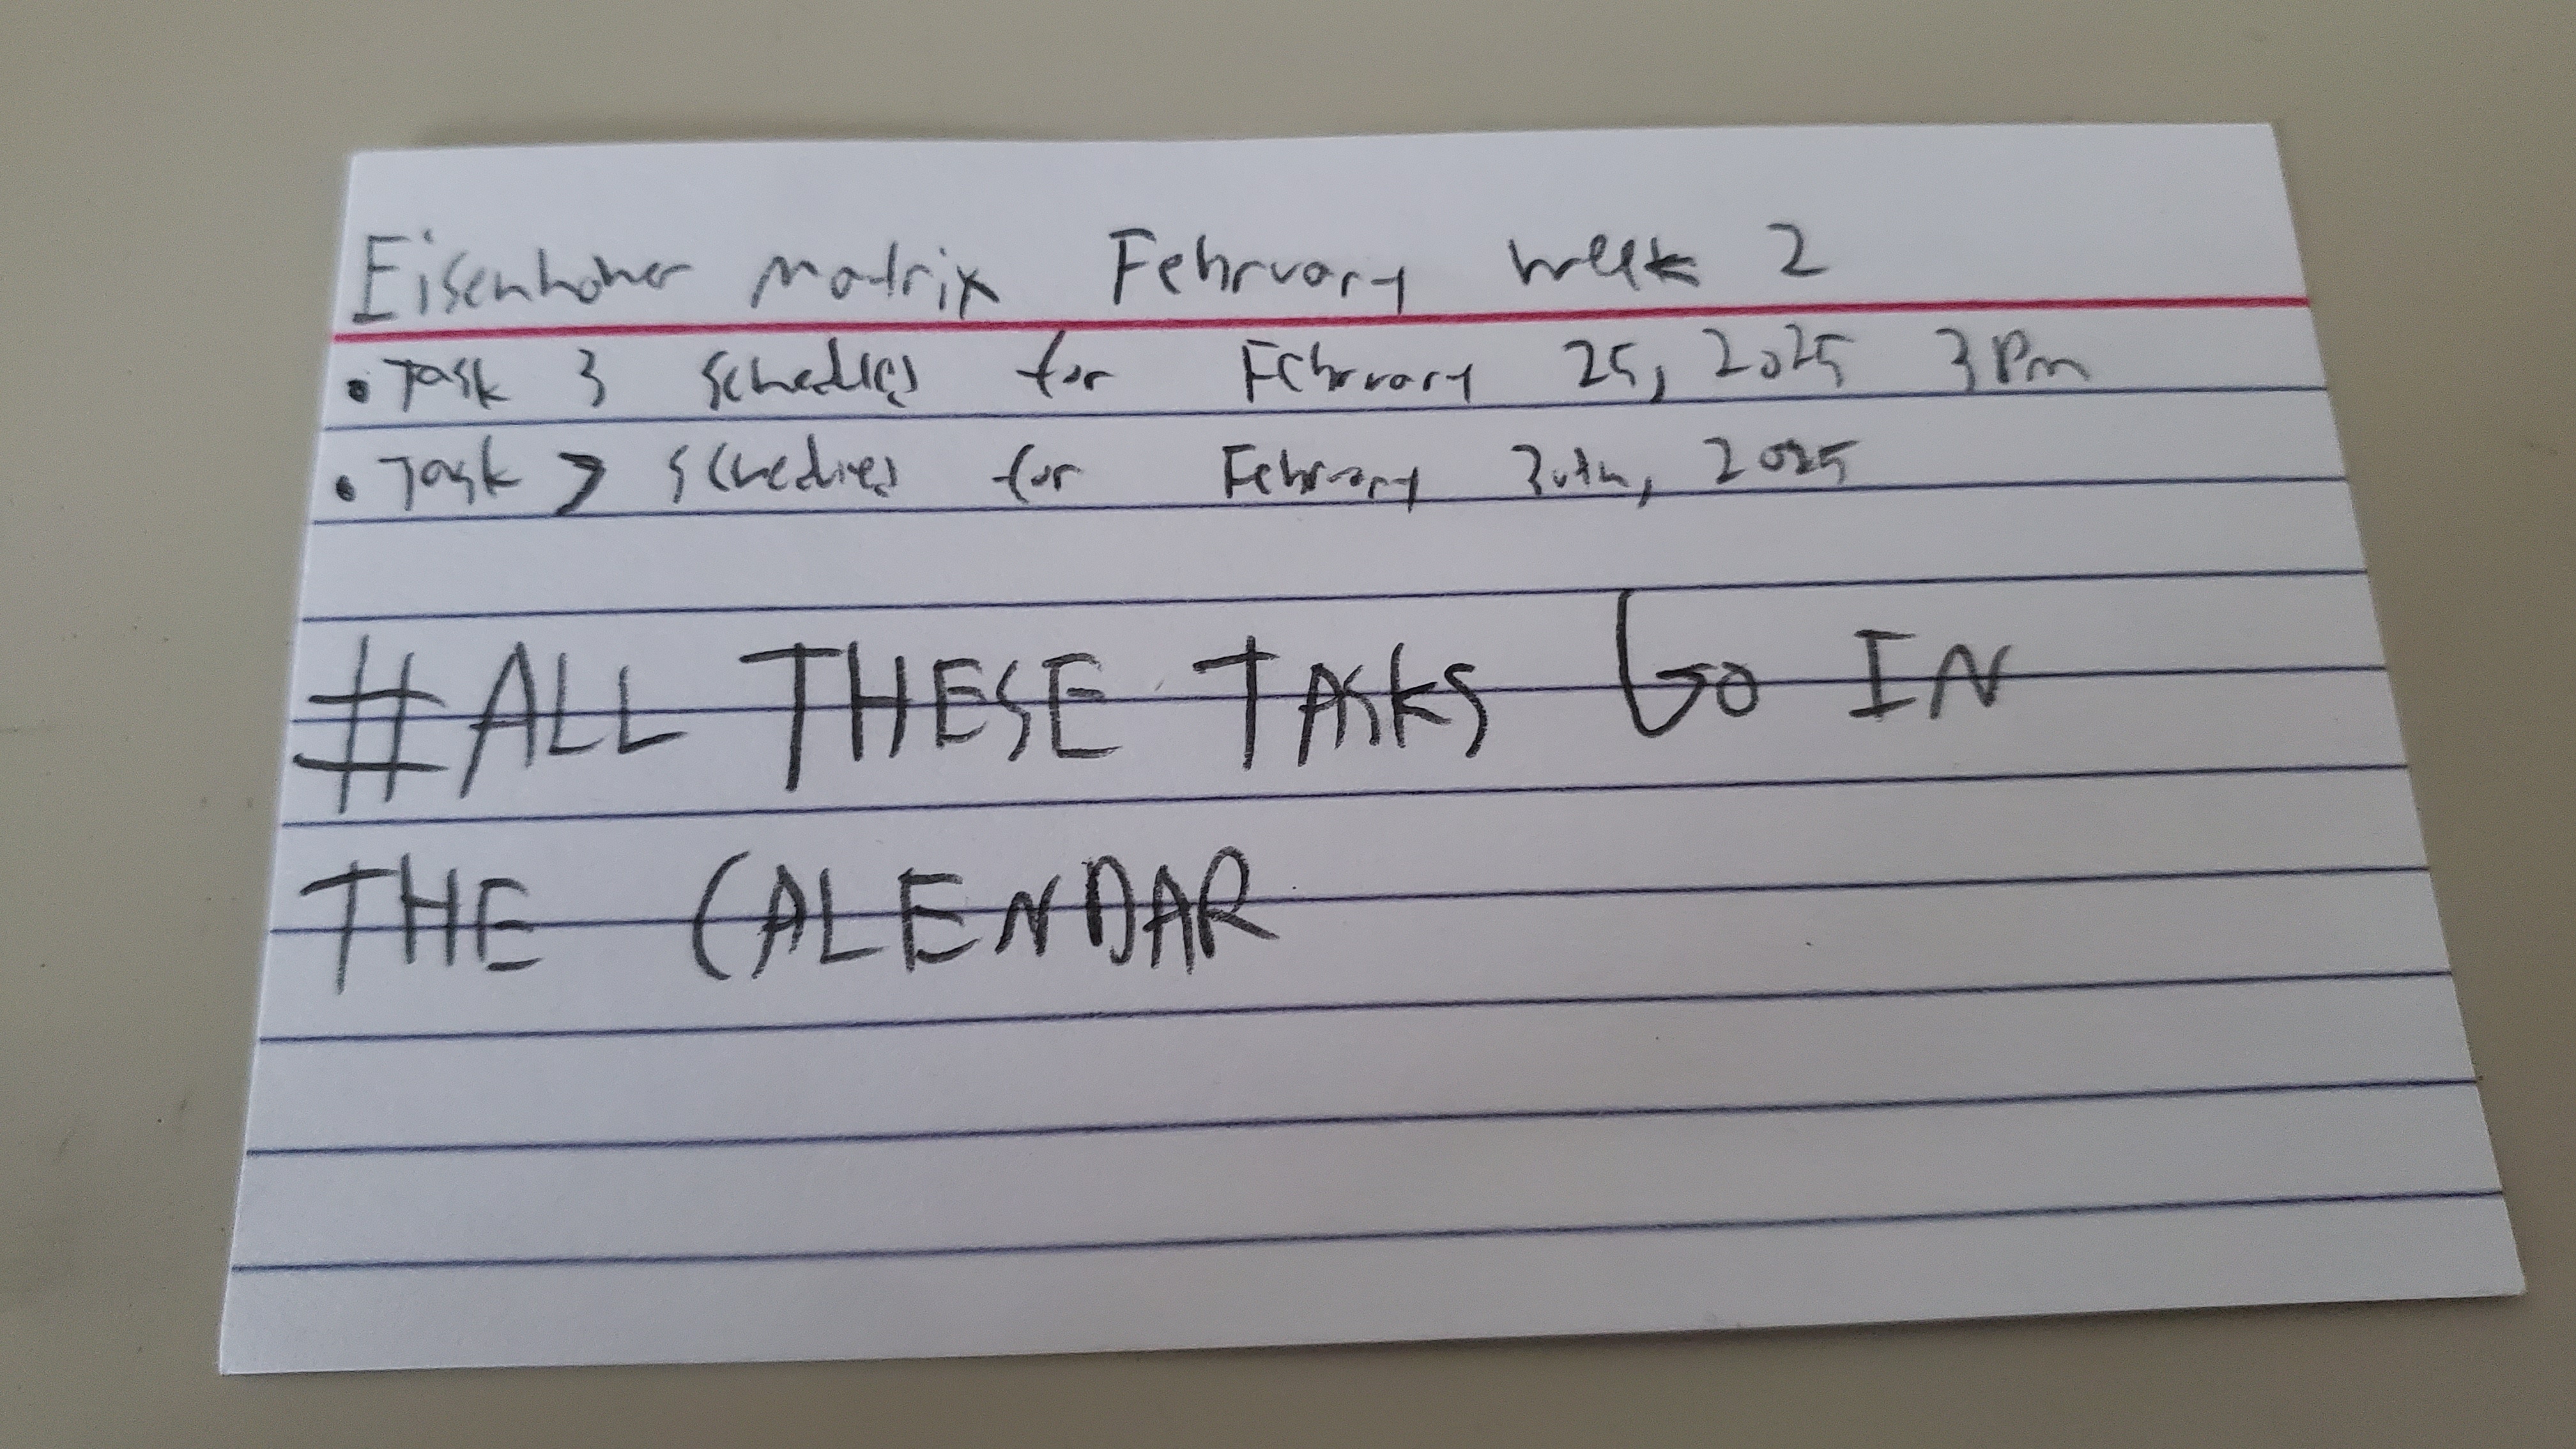 Eisenhower matrix February week 2
• Task 3 schedules for February 25, 2025 3 Pm
• Task 7 schedules for February 20th, 2025
#ALL THESE TASKS GO IN
THE CALENDAR